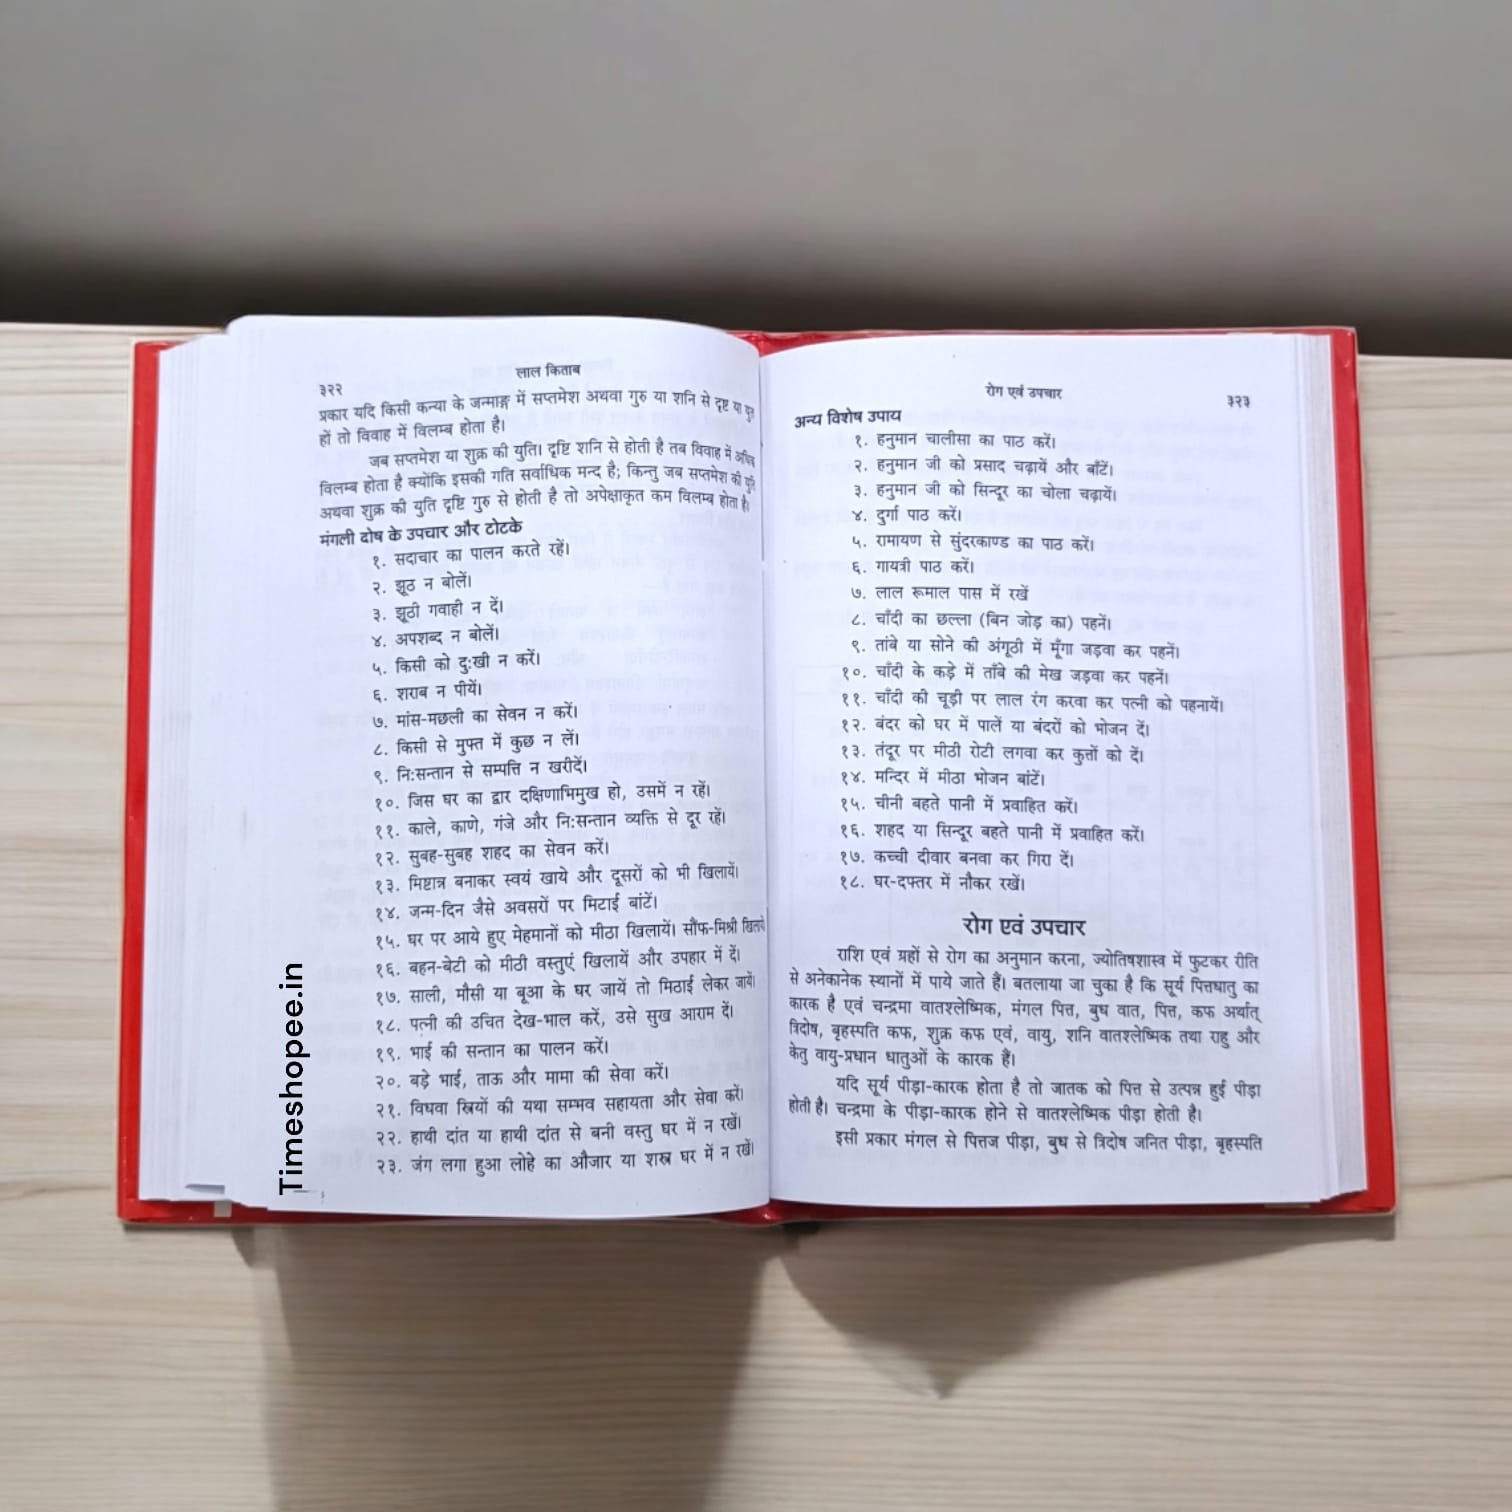 ३२२
लाल किताब
प्रकार यदि किसी कन्या के जन्माङ्ग में सप्तमेश अथवा गुरु या शनि से दृष्ट या युत
हों तो विवाह में विलम्ब होता है।
जब सप्तमेश या शुक्र की युति। दृष्टि शनि से होती है तब विवाह में अधिक
विलम्ब होता है क्योंकि इसकी गति सर्वाधिक मन्द है; किन्तु जब सप्तमेश की युति
अथवा शुक्र की युति दृष्टि गुरु से होती है तो अपेक्षाकृत कम विलम्ब होता है।
मंगली दोष के उपचार और टोटके
१. सदाचार का पालन करते रहें।
२. झूठ न बोलें।
३. झूठी गवाही न दें।
४. अपशब्द न बोलें।
५. किसी को दुःखी न करें।
६. शराब न पीयें।
७. मांस-मछली का सेवन न करें।
८. किसी से मुफ्त में कुछ न लें।
९. निःसन्तान से सम्पत्ति न खरीदें।
१०. जिस घर का द्वार दक्षिणाभिमुख हो, उसमें न रहें।
११. काले, काणे, गंजे और निःसन्तान व्यक्ति से दूर रहें।
१२. सुबह-सुबह शहद का सेवन करें।
१३. मिष्टान्न बनाकर स्वयं खाये और दूसरों को भी खिलायें।
१४. जन्म-दिन जैसे अवसरों पर मिटाई बांटें।
१५. घर पर आये हुए मेहमानों को मीठा खिलायें। सौंफ-मिश्री खिलायें
१६. बहन-बेटी को मीठी वस्तुएं खिलायें और उपहार में दें।
१७. साली, मौसी या बूआ के घर जायें तो मिठाई लेकर जायें।
१८. पत्नी की उचित देख-भाल करें, उसे सुख आराम दें।
१९. भाई की सन्तान का पालन करें।
२०. बड़े भाई, ताऊ और मामा की सेवा करें।
२१. विधवा स्त्रियों की यथा सम्भव सहायता और सेवा करें।
२२. हाथी दांत या हाथी दांत से बनी वस्तु घर में न रखें।
२३. जंग लगा हुआ लोहे का औजार या शस्त्र घर में न रखें।
Timeshopee.in
रोग एवं उपचार
३२३
अन्य विशेष उपाय
१. हनुमान चालीसा का पाठ करें।
२. हनुमान जी को प्रसाद चढ़ायें और बाँटें।
३. हनुमान जी को सिन्दूर का चोला चढ़ायें।
४. दुर्गा पाठ करें।
५. रामायण से सुंदरकाण्ड का पाठ करें।
६. गायत्री पाठ करें।
७. लाल रूमाल पास में रखें
८. चाँदी का छल्ला (बिन जोड़ का) पहनें।
९. तांबे या सोने की अंगूठी में मूँगा जड़वा कर पहनें।
१०. चाँदी के कड़े में ताँबे की मेख जड़वा कर पहनें।
११. चाँदी की चूड़ी पर लाल रंग करवा कर पत्नी को पहनायें।
१२. बंदर को घर में पालें या बंदरों को भोजन दें।
१३. तंदूर पर मीठी रोटी लगवा कर कुत्तों को दें।
१४. मन्दिर में मीठा भोजन बांटें।
१५. चीनी बहते पानी में प्रवाहित करें।
१६. शहद या सिन्दूर बहते पानी में प्रवाहित करें।
१७. कच्ची दीवार बनवा कर गिरा दें।
१८. घर-दफ्तर में नौकर रखें।
रोग एवं उपचार
राशि एवं ग्रहों से रोग का अनुमान करना, ज्योतिषशास्त्र में फुटकर रीति
से अनेकानेक स्थानों में पाये जाते हैं। बतलाया जा चुका है कि सूर्य पित्तधातु का
कारक है एवं चन्द्रमा वातश्लेष्मिक, मंगल पित्त, बुध वात, पित्त, कफ अर्थात्
त्रिदोष, बृहस्पति कफ, शुक्र कफ एवं, वायु, शनि वातश्लेष्मिक तथा राहु और
केतु वायु-प्रधान धातुओं के कारक हैं।
यदि सूर्य पीड़ा-कारक होता है तो जातक को पित्त से उत्पन्न हुई पीड़ा
होती है। चन्द्रमा के पीड़ा-कारक होने से वातश्लेष्मिक पीड़ा होती है।
इसी प्रकार मंगल से पित्तज पीड़ा, बुध से त्रिदोष जनित पीड़ा, बृहस्पति